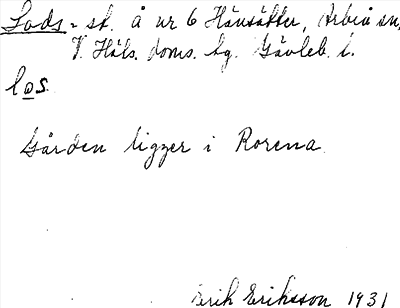 Lods = st. å nr 6 Hänsätter, Arbrå sn,
V. Häls. doms. hg. Gävleb. l.
los
Gården ligger i Rorena
Erik Eriksson 1931